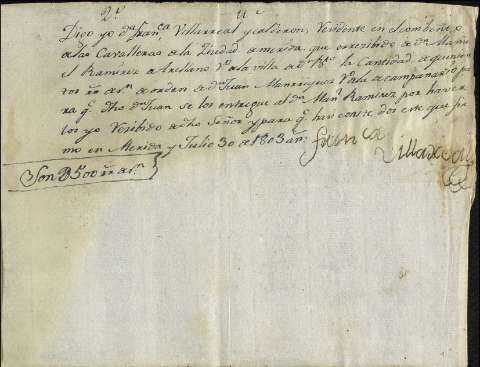 Digo yo dª Franca Villarreal y calderon, Residente en el combento
de las Cavalleras de la Ciudad de merida, que he rrecibido de dn Manu
el Ramirez de Arellano Vº de la villa de la Cantidad de quinien
tos rrs de vn de orden de dn Juan Manrriquez
ra q. dho dn Juan se los entregue al dn Manl Ramirez por haver
los yo Recibido de dho Señor, y para q. haci conste, doi este que fir
mo en Merida y Julio 30 de 1803 as
Franca
Villarreal
Son 500 rrs de vn